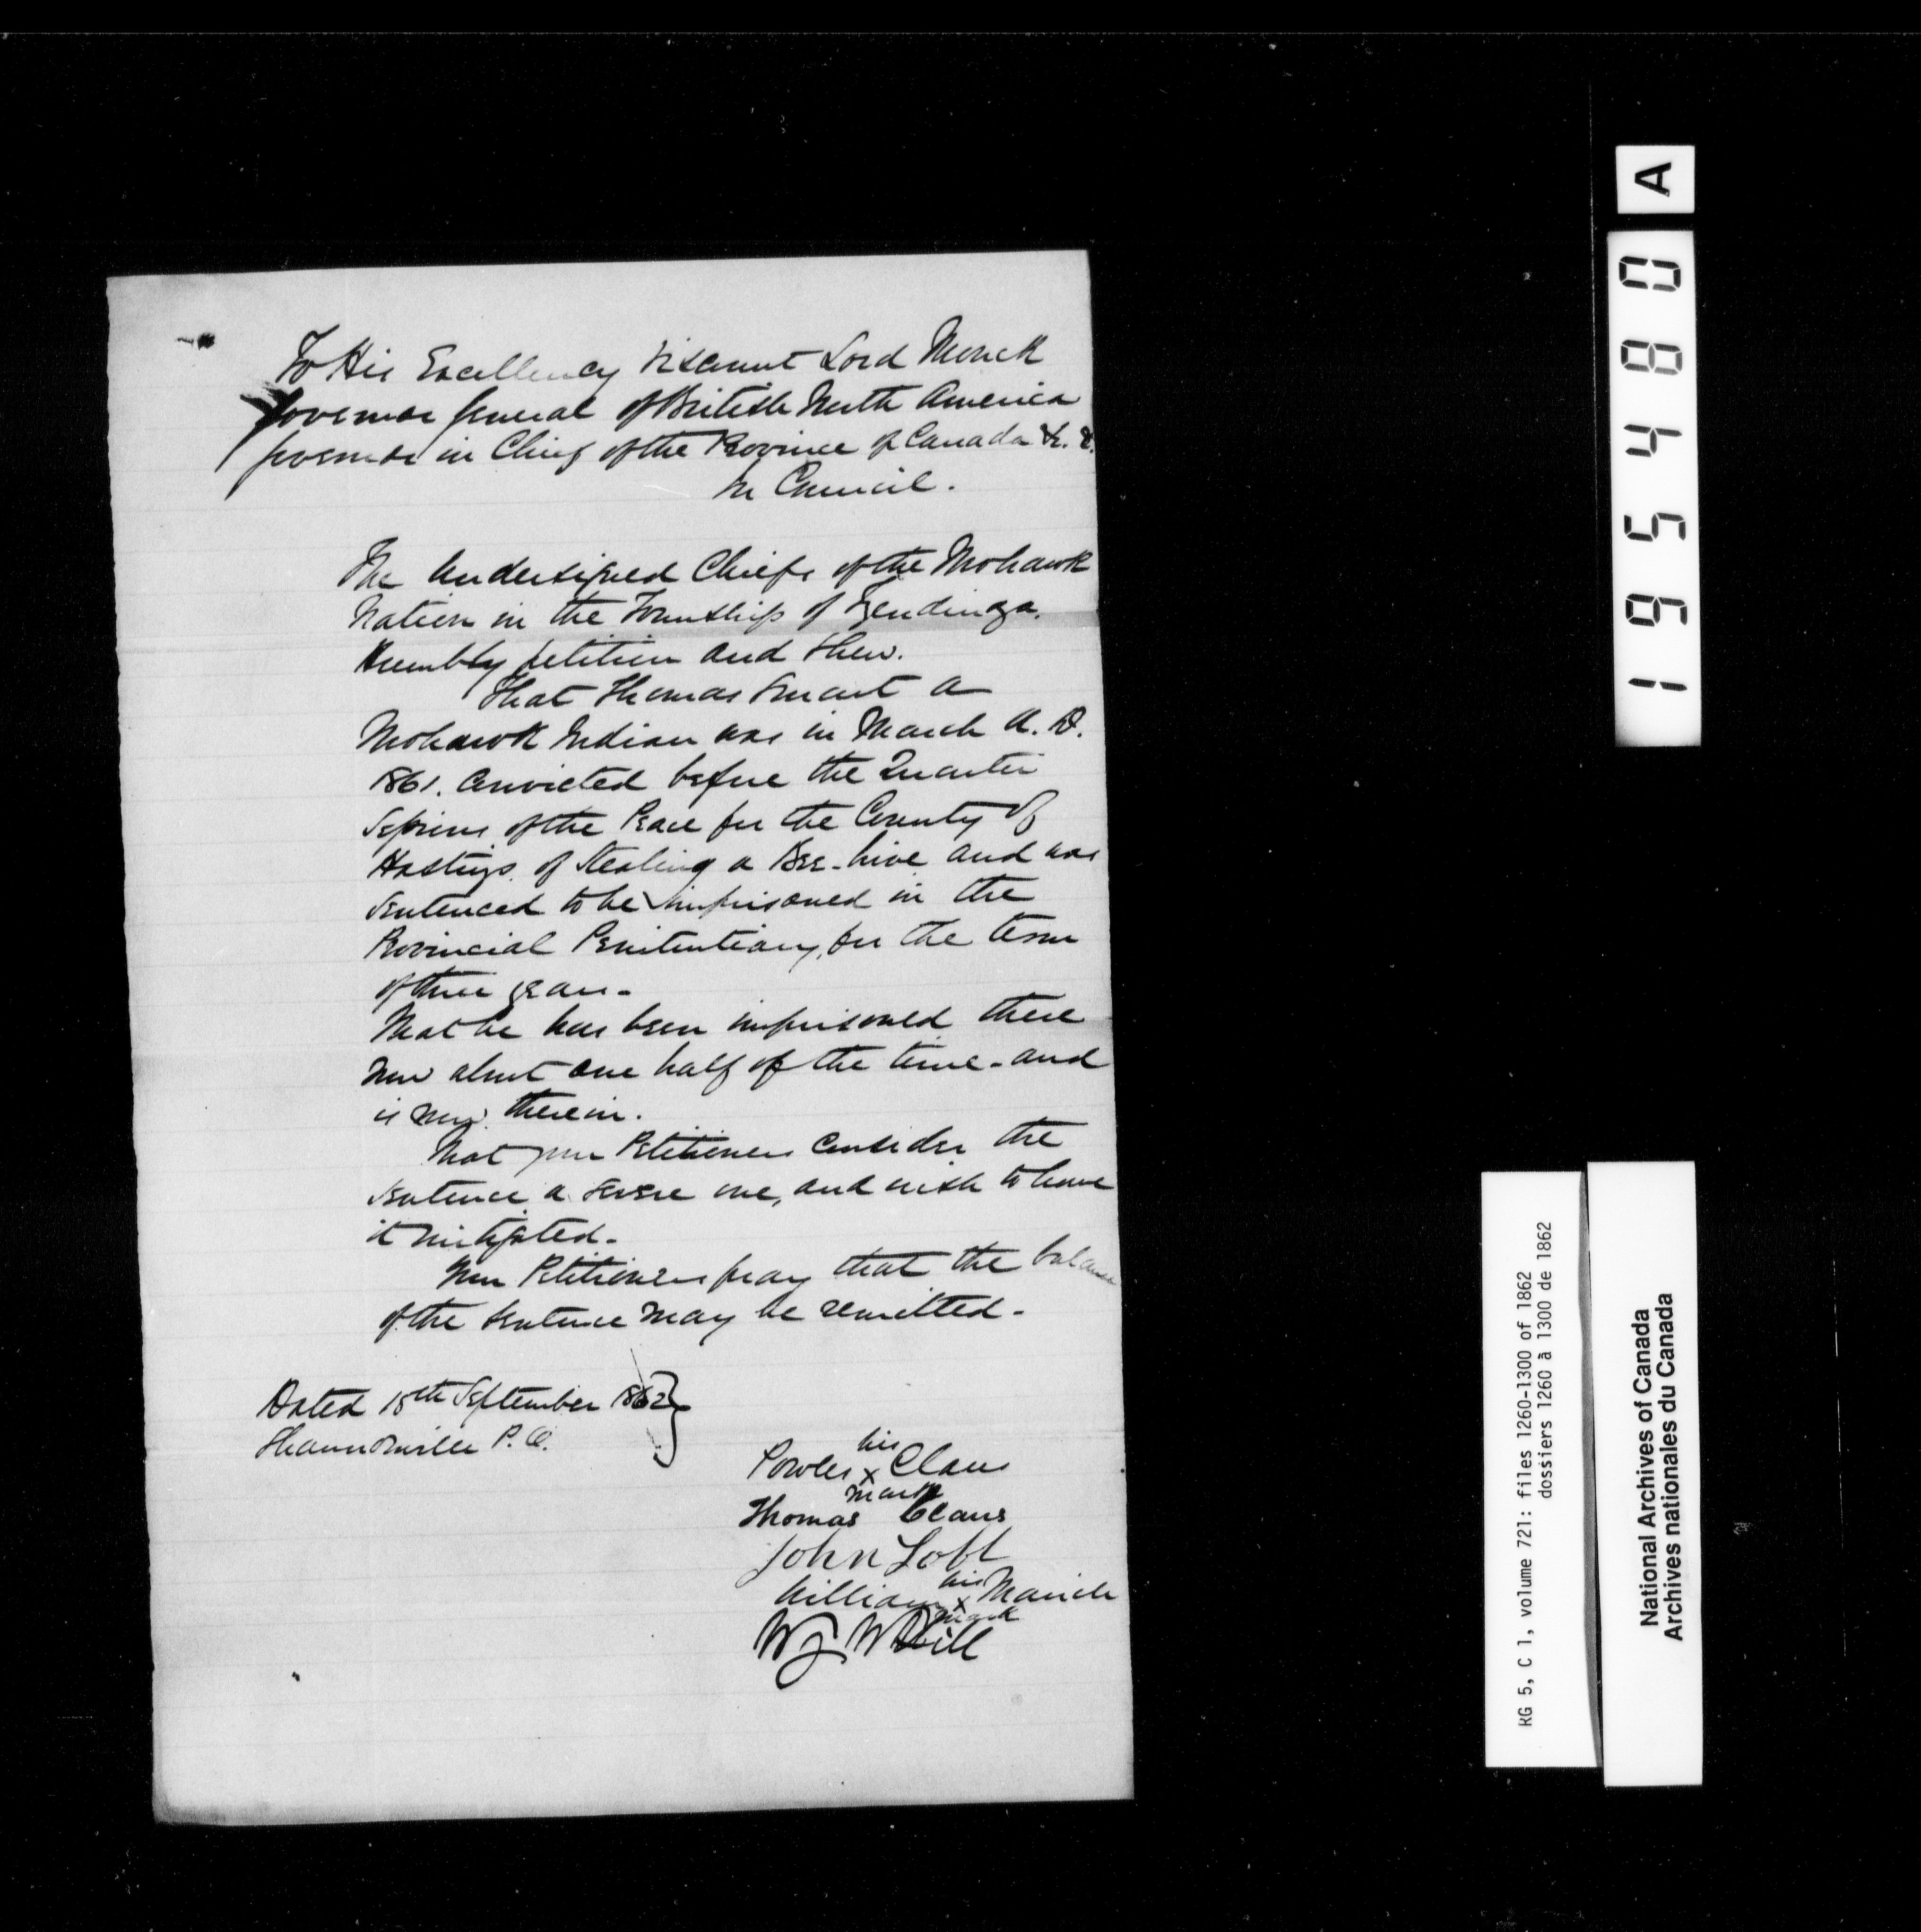 To His Excellency Viscount Lord Monck
Governor General of British North America
Governor in Chief of the Province of Canada &c. &c.
In Council.
The Undersigned Chiefs of the Mohawk
Nation in the Township of Tyendinaga.
Humbly petition and Shew.
That Thomas Smart a
Mohawk Indian was in March A. D.
1861. Convicted before the Quarter
Sessions of the Peace for the County of
Hastings of Stealing a Bee-hive and was
Sentenced to be imprisoned in the
Provincial Penitentiary, for the term
of three years-
That he has been imprisoned there
now about one half of the time - and
is now therein.
That your Petitioners Consider the
Sentence a severe one, and wish to have
it mitigated-
Your Petitioners pray that the balance
of the Sentence may be remitted-
Dated 18th September 1862 }
Shannonville P. O.
his
Powles x Claus
mark
Thomas Claus
John Loft
his
William x Maricle
mark
Wm W Hill
A
195480
RG 5, C 1, volume 721: files 1260-1300 of 1862
dossiers 1260 à 1300 de 1862
National Archives of Canada
Archives nationales du Canada